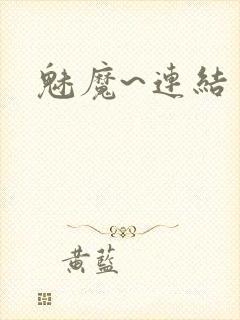 魅魔~連結
黃藍